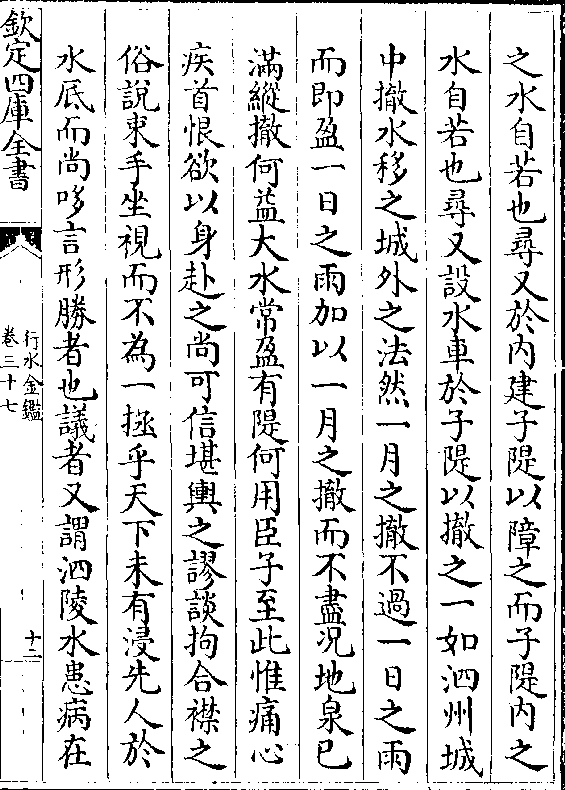 之水自若也尋又於内建子隄以障之而子隄内之
水自若也尋又設水車於子隄以撤之一如泗州城
中撤水移之城外之法然一月之撤不過一日之雨
而即盈一日之雨加以一月之撤而不盡况地泉已
滿縱撤何益大水常盈有隄何用臣子至此惟痛心
疾首恨欲以身赴之尚可信堪輿之謬談拘合襟之
俗說束手坐視而不為一拯乎天下未有浸先人於
水底而尚哆言形勝者也議者又謂泗陵水患病在
欽定四庫全書
行水金鑑
卷三十七
十二